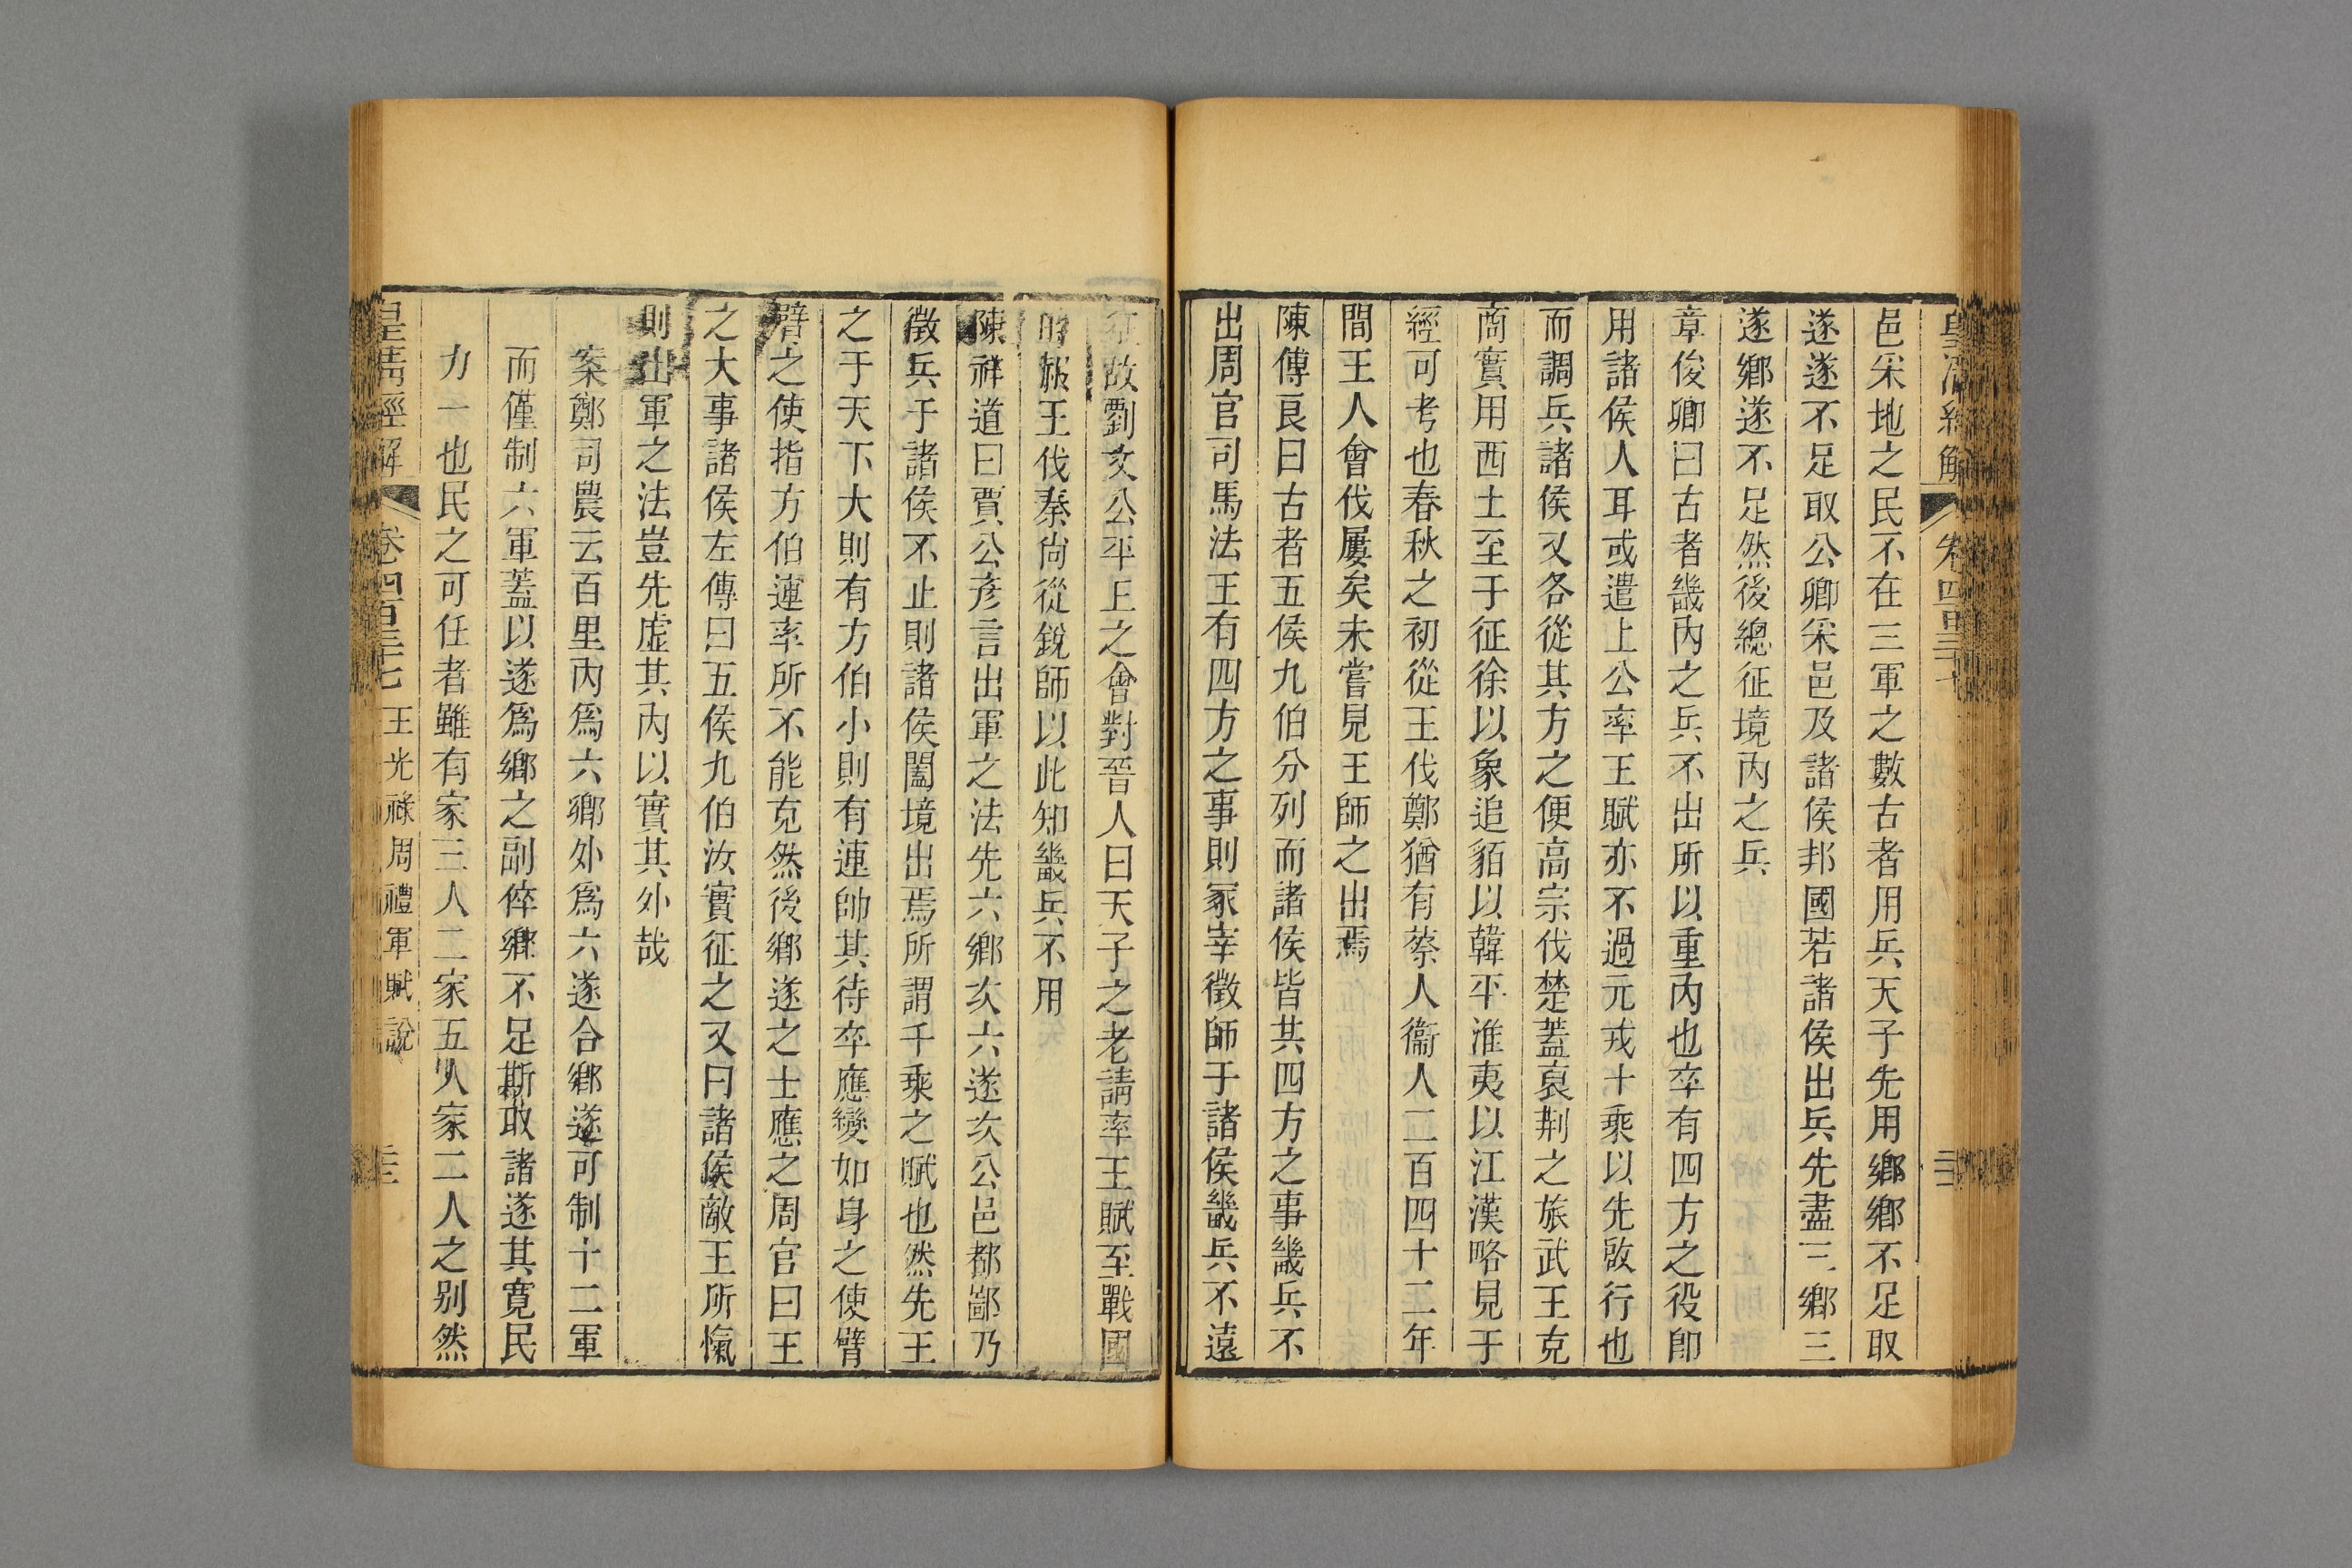 邑采地之民不在三軍之數古者用兵天子先用鄉鄉不足取
遂遂不足取公卿采邑及諸侯邦國若諸侯出兵先盡三鄉三
遂鄉遂不足然後總征境内之兵
章俊卿曰古者畿内之兵不出所以重内也卒有四方之役卽
用諸侯人耳或遣上公率王賦亦不過元戎十乘以先啟行也
而調兵諸侯又各從其方之便高宗伐楚蓋裒荆之旅武王克
商實用西土至于征徐以象追貊以韓平淮夷以江漢略見于
經可考也春秋之初從王伐鄭猶有蔡人衞人二百四十二年
間王人會伐屢矣未嘗見王師之出焉
陳傅良曰古者五侯九伯分列而諸侯皆共四方之事畿兵不
出周官司馬法王有四方之事則冢宰徵師于諸侯畿兵不遠
征故劉文公平上之會對晉人曰天子之老請率王賦至戰國
時赧王伐秦尙從銳師以此知畿兵不用
陳祥道曰賈公彥言出軍之法先六鄉次六遂次公邑都鄙乃
徵兵于諸侯不止則諸侯闔境出焉所謂千乘之賦也然先王
之于天下大則有方伯小則有連帥其待卒應變如身之使臂
臂之使指方伯連率所不能克然後鄉遂之士應之周官曰王
之大事諸侯左傳曰五侯九伯汝實征之又曰諸侯敵王所愾
則出軍之法豈先虛其内以實其外哉
案鄭司農云百里内爲六鄉外爲六遂合鄉遂可制十二軍
而僅制六軍蓋以遂爲鄉之副倅鄉不足斯取諸遂其寬民
力一也民之可任者雖有家三人二家五人家二人之别然
皇清經解 卷四百三十七 王光祿周禮軍賦說